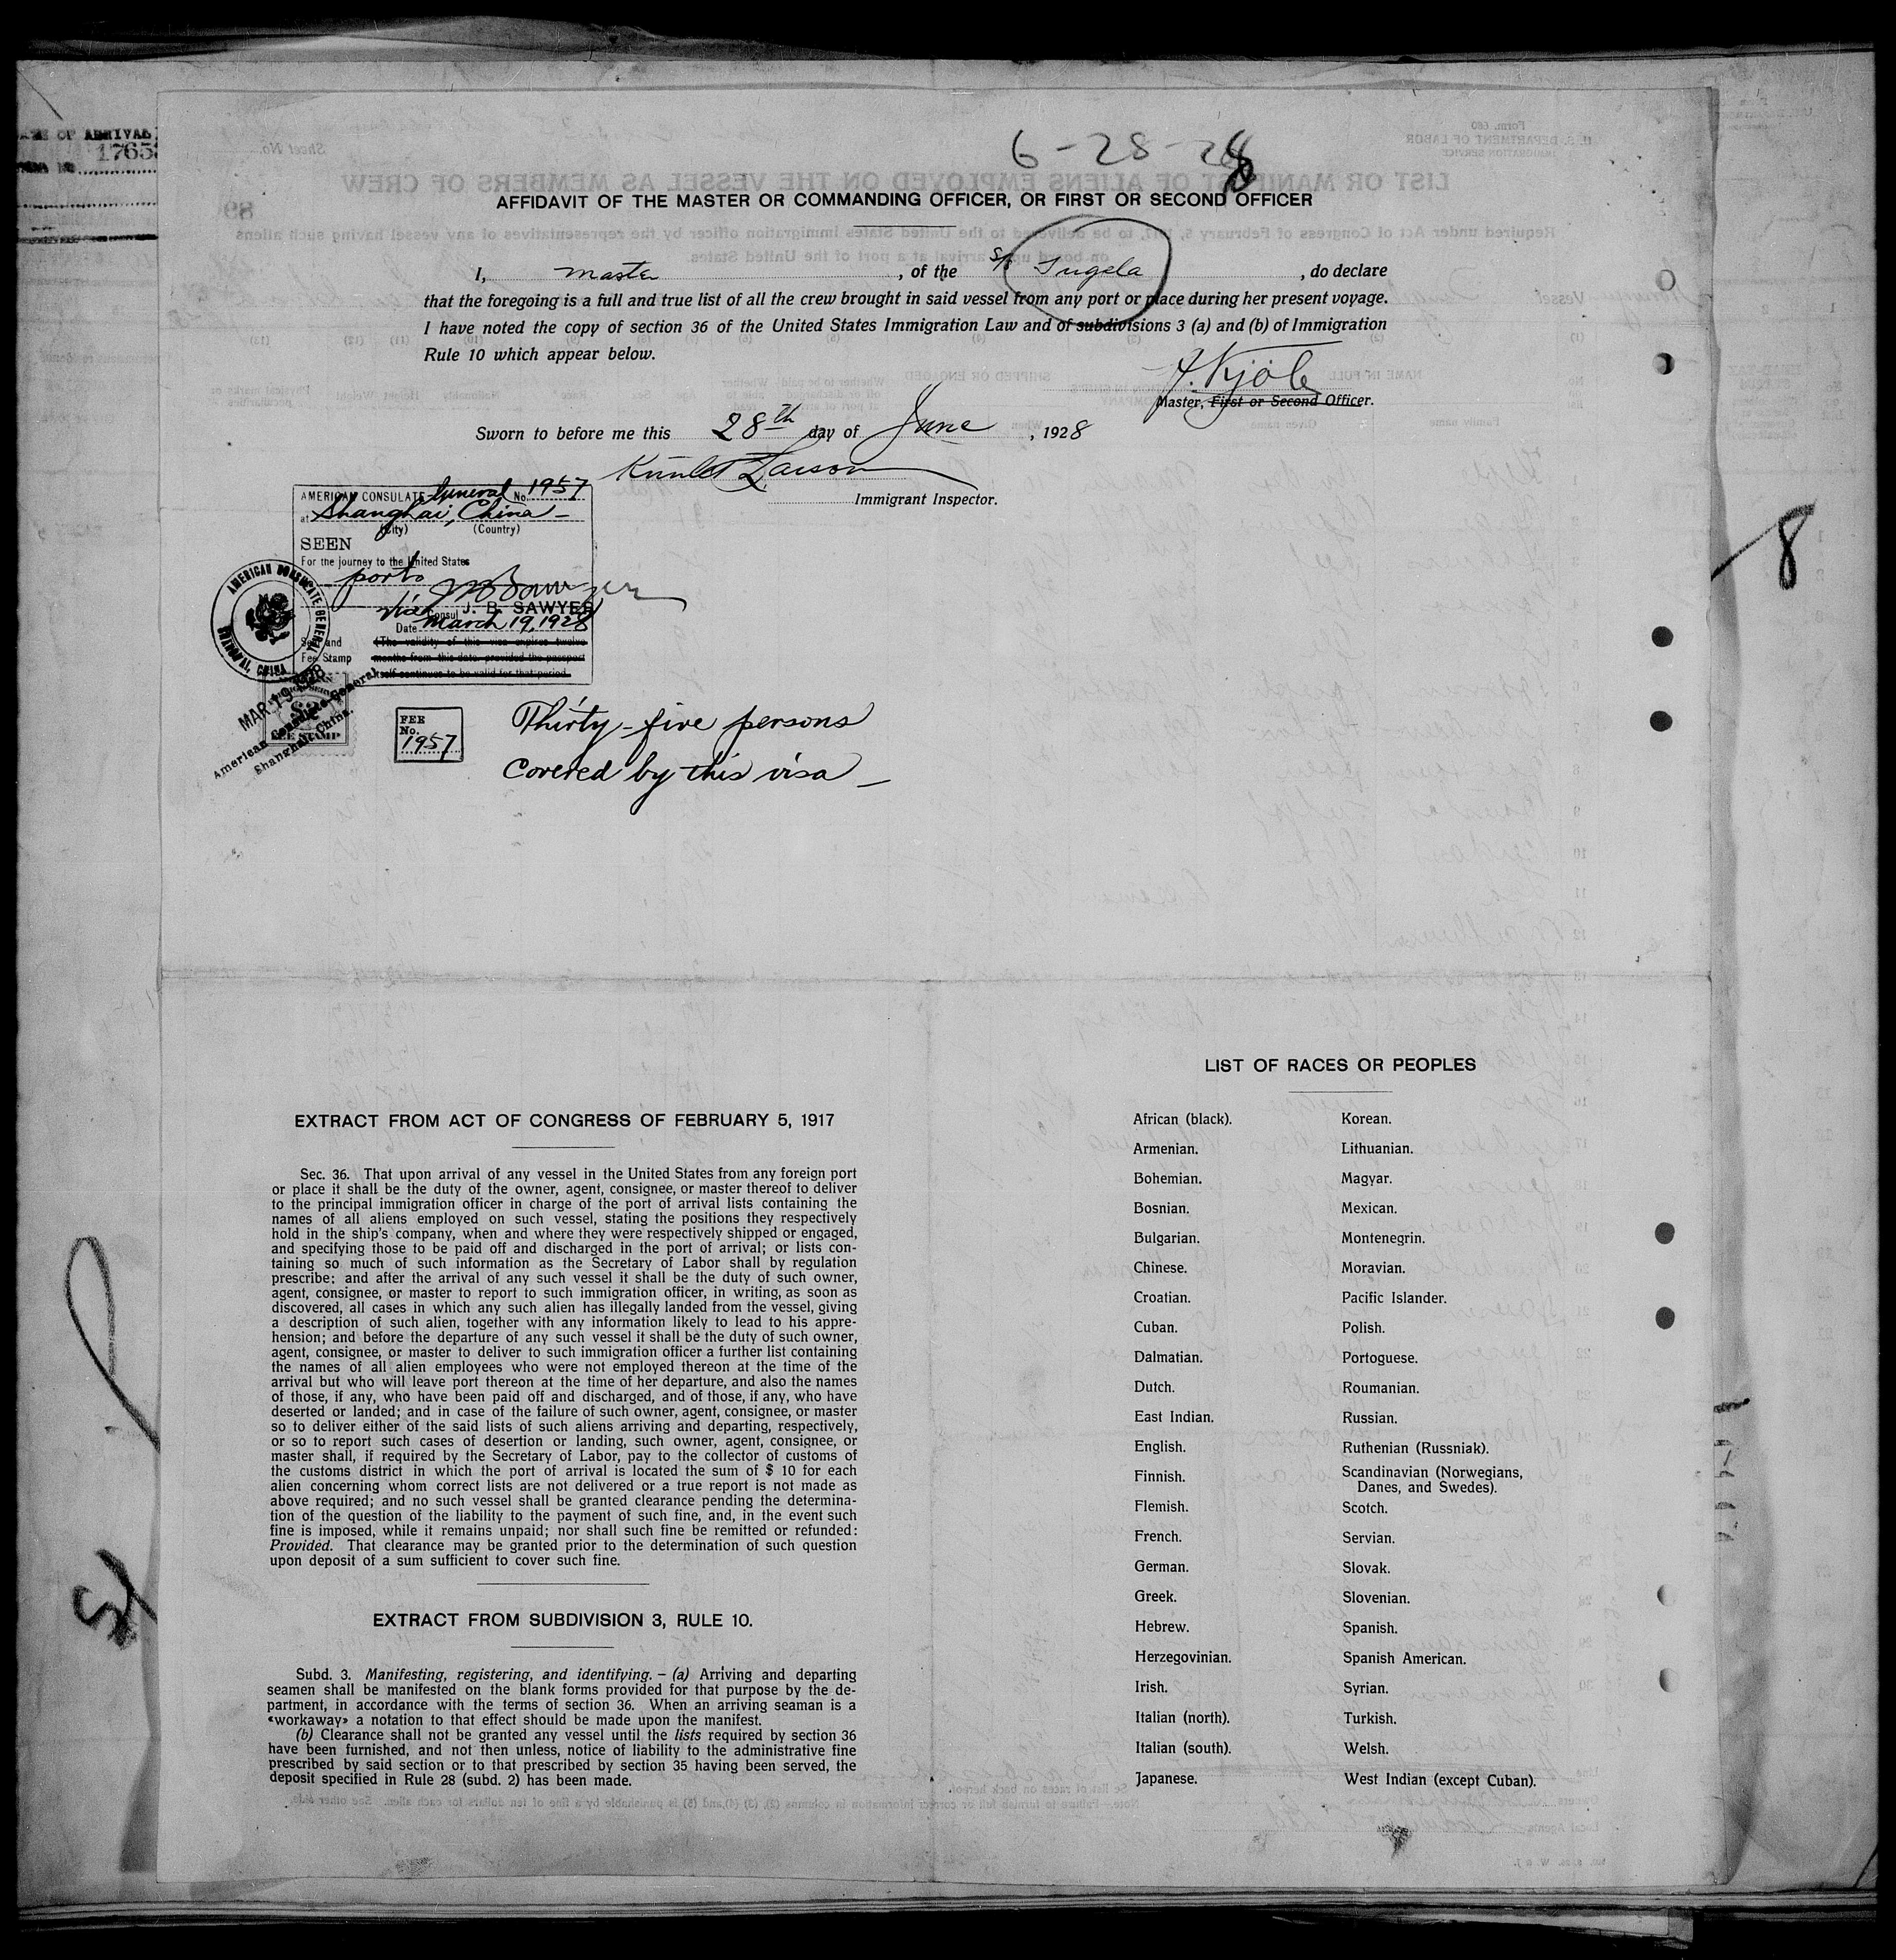 6-28-28
AFFIDAVIT OF THE MASTER OR COMMANDING OFFICER, OR FIRST OR SECOND OFFICER
I, master, of the S/S Tugela, do declare
that the foregoing is a full and true list of all the crew brought in said vessel from any port or place during her present voyage.
I have noted the copy of section 36 of the United States Immigration Law and of subdivisions 3 (a) and (b) of Immigration
Rule 10 which appear below.
Kjöle
Master, First or Second Officer.
Sworn to before me this 28th day of June, 1928
Larson
Immigrant Inspector.
AMERICAN CONSULATE General No. 1957
at Shanghai, China
(City) (Country)
SEEN
For the journey to the United States
ports
Vice Consul J. B. SAWYER
Date March 19, 1928
Seal and (The validity of this visa expires twelve
Fee Stamp months from this date provided the passport
itself continues to be valid for that period.
AMERICAN CONSULATE GENERAL
SHANGHAI, CHINA
MAR 19 1928
American Consulate General
Shanghai, China.
FEE STAMP
FEE
No.
1957
Thirty-five persons
covered by this visa
8
1765
LIST OF RACES OR PEOPLES
African (black). Korean.
Armenian. Lithuanian.
Bohemian. Magyar.
Bosnian. Mexican.
Bulgarian. Montenegrin.
Chinese. Moravian.
Croatian. Pacific Islander.
Cuban. Polish.
Dalmatian. Portoguese.
Dutch. Roumanian.
East Indian. Russian.
English. Ruthenian (Russniak).
Finnish. Scandinavian (Norwegians,
Danes, and Swedes).
Flemish. Scotch.
French. Servian.
German. Slovak.
Greek. Slovenian.
Hebrew. Spanish.
Herzegovinian. Spanish American.
Irish. Syrian.
Italian (north). Turkish.
Italian (south). Welsh.
Japanese. West Indian (except Cuban).
EXTRACT FROM ACT OF CONGRESS OF FEBRUARY 5, 1917
Sec. 36. That upon arrival of any vessel in the United States from any foreign port
or place it shall be the duty of the owner, agent, consignee, or master thereof to deliver
to the principal immigration officer in charge of the port of arrival lists containing the
names of all aliens employed on such vessel, stating the positions they respectively
hold in the ship's company, when and where they were respectively shipped or engaged,
and specifying those to be paid off and discharged in the port of arrival; or lists con-
taining so much of such information as the Secretary of Labor shall by regulation
prescribe; and after the arrival of any such vessel it shall be the duty of such owner,
agent, consignee, or master to report to such immigration officer, in writing, as soon as
discovered, all cases in which any such alien has illegally landed from the vessel, giving
a description of such alien, together with any information likely to lead to his appre-
hension; and before the departure of any such vessel it shall be the duty of such owner,
agent, consignee, or master to deliver to such immigration officer a further list containing
the names of all alien employees who were not employed thereon at the time of the
arrival but who will leave port thereon at the time of her departure, and also the names
of those, if any, who have been paid off and discharged, and of those, if any, who have
deserted or landed; and in case of the failure of such owner, agent, consignee, or master
so to deliver either of the said lists of such aliens arriving and departing, respectively,
or so to report such cases of desertion or landing, such owner, agent, consignee, or
master shall, if required by the Secretary of Labor, pay to the collector of customs of
the customs district in which the port of arrival is located the sum of $ 10 for each
alien concerning whom correct lists are not delivered or a true report is not made as
above required; and no such vessel shall be granted clearance pending the determina-
tion of the question of the liability to the payment of such fine, and, in the event such
fine is imposed, while it remains unpaid; nor shall such fine be remitted or refunded:
Provided. That clearance may be granted prior to the determination of such question
upon deposit of a sum sufficient to cover such fine.
EXTRACT FROM SUBDIVISION 3, RULE 10.
Subd. 3. Manifesting, registering, and identifying. – (a) Arriving and departing
seamen shall be manifested on the blank forms provided for that purpose by the de-
partment, in accordance with the terms of section 36. When an arriving seaman is a
«workaway» a notation to that effect should be made upon the manifest.
(b) Clearance shall not be granted any vessel until the lists required by section 36
have been furnished, and not then unless, notice of liability to the administrative fine
prescribed by said section or to that prescribed by section 35 having been served, the
deposit specified in Rule 28 (subd. 2) has been made.